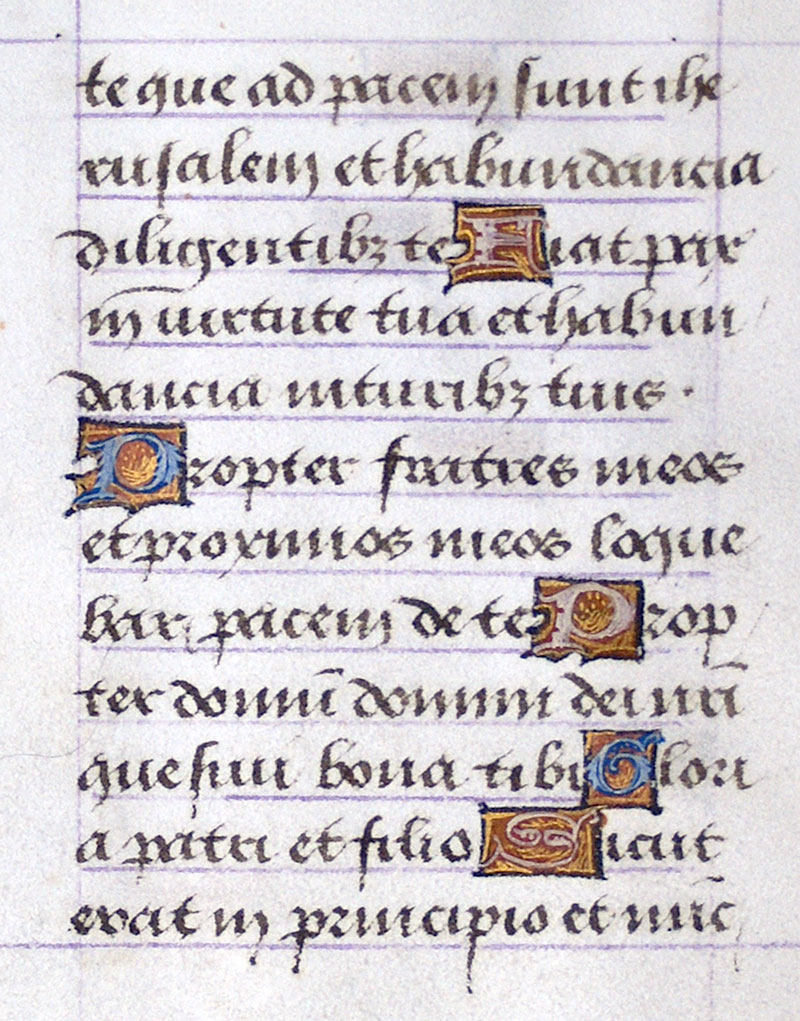 te que ad pacem sunt ihe
rusalem et habundancia
diligentibꝫ te Fiat pax
in̄ uirtute tua et habun
dancia in turibꝫ tuis ·
Propter fratres meos
et proximos meos loque
bar pacem de te Prop
ter domū domini dei nr̄i
quesiui bona tibi Glori
a patri et filio Sicut
erat in principio et nūc